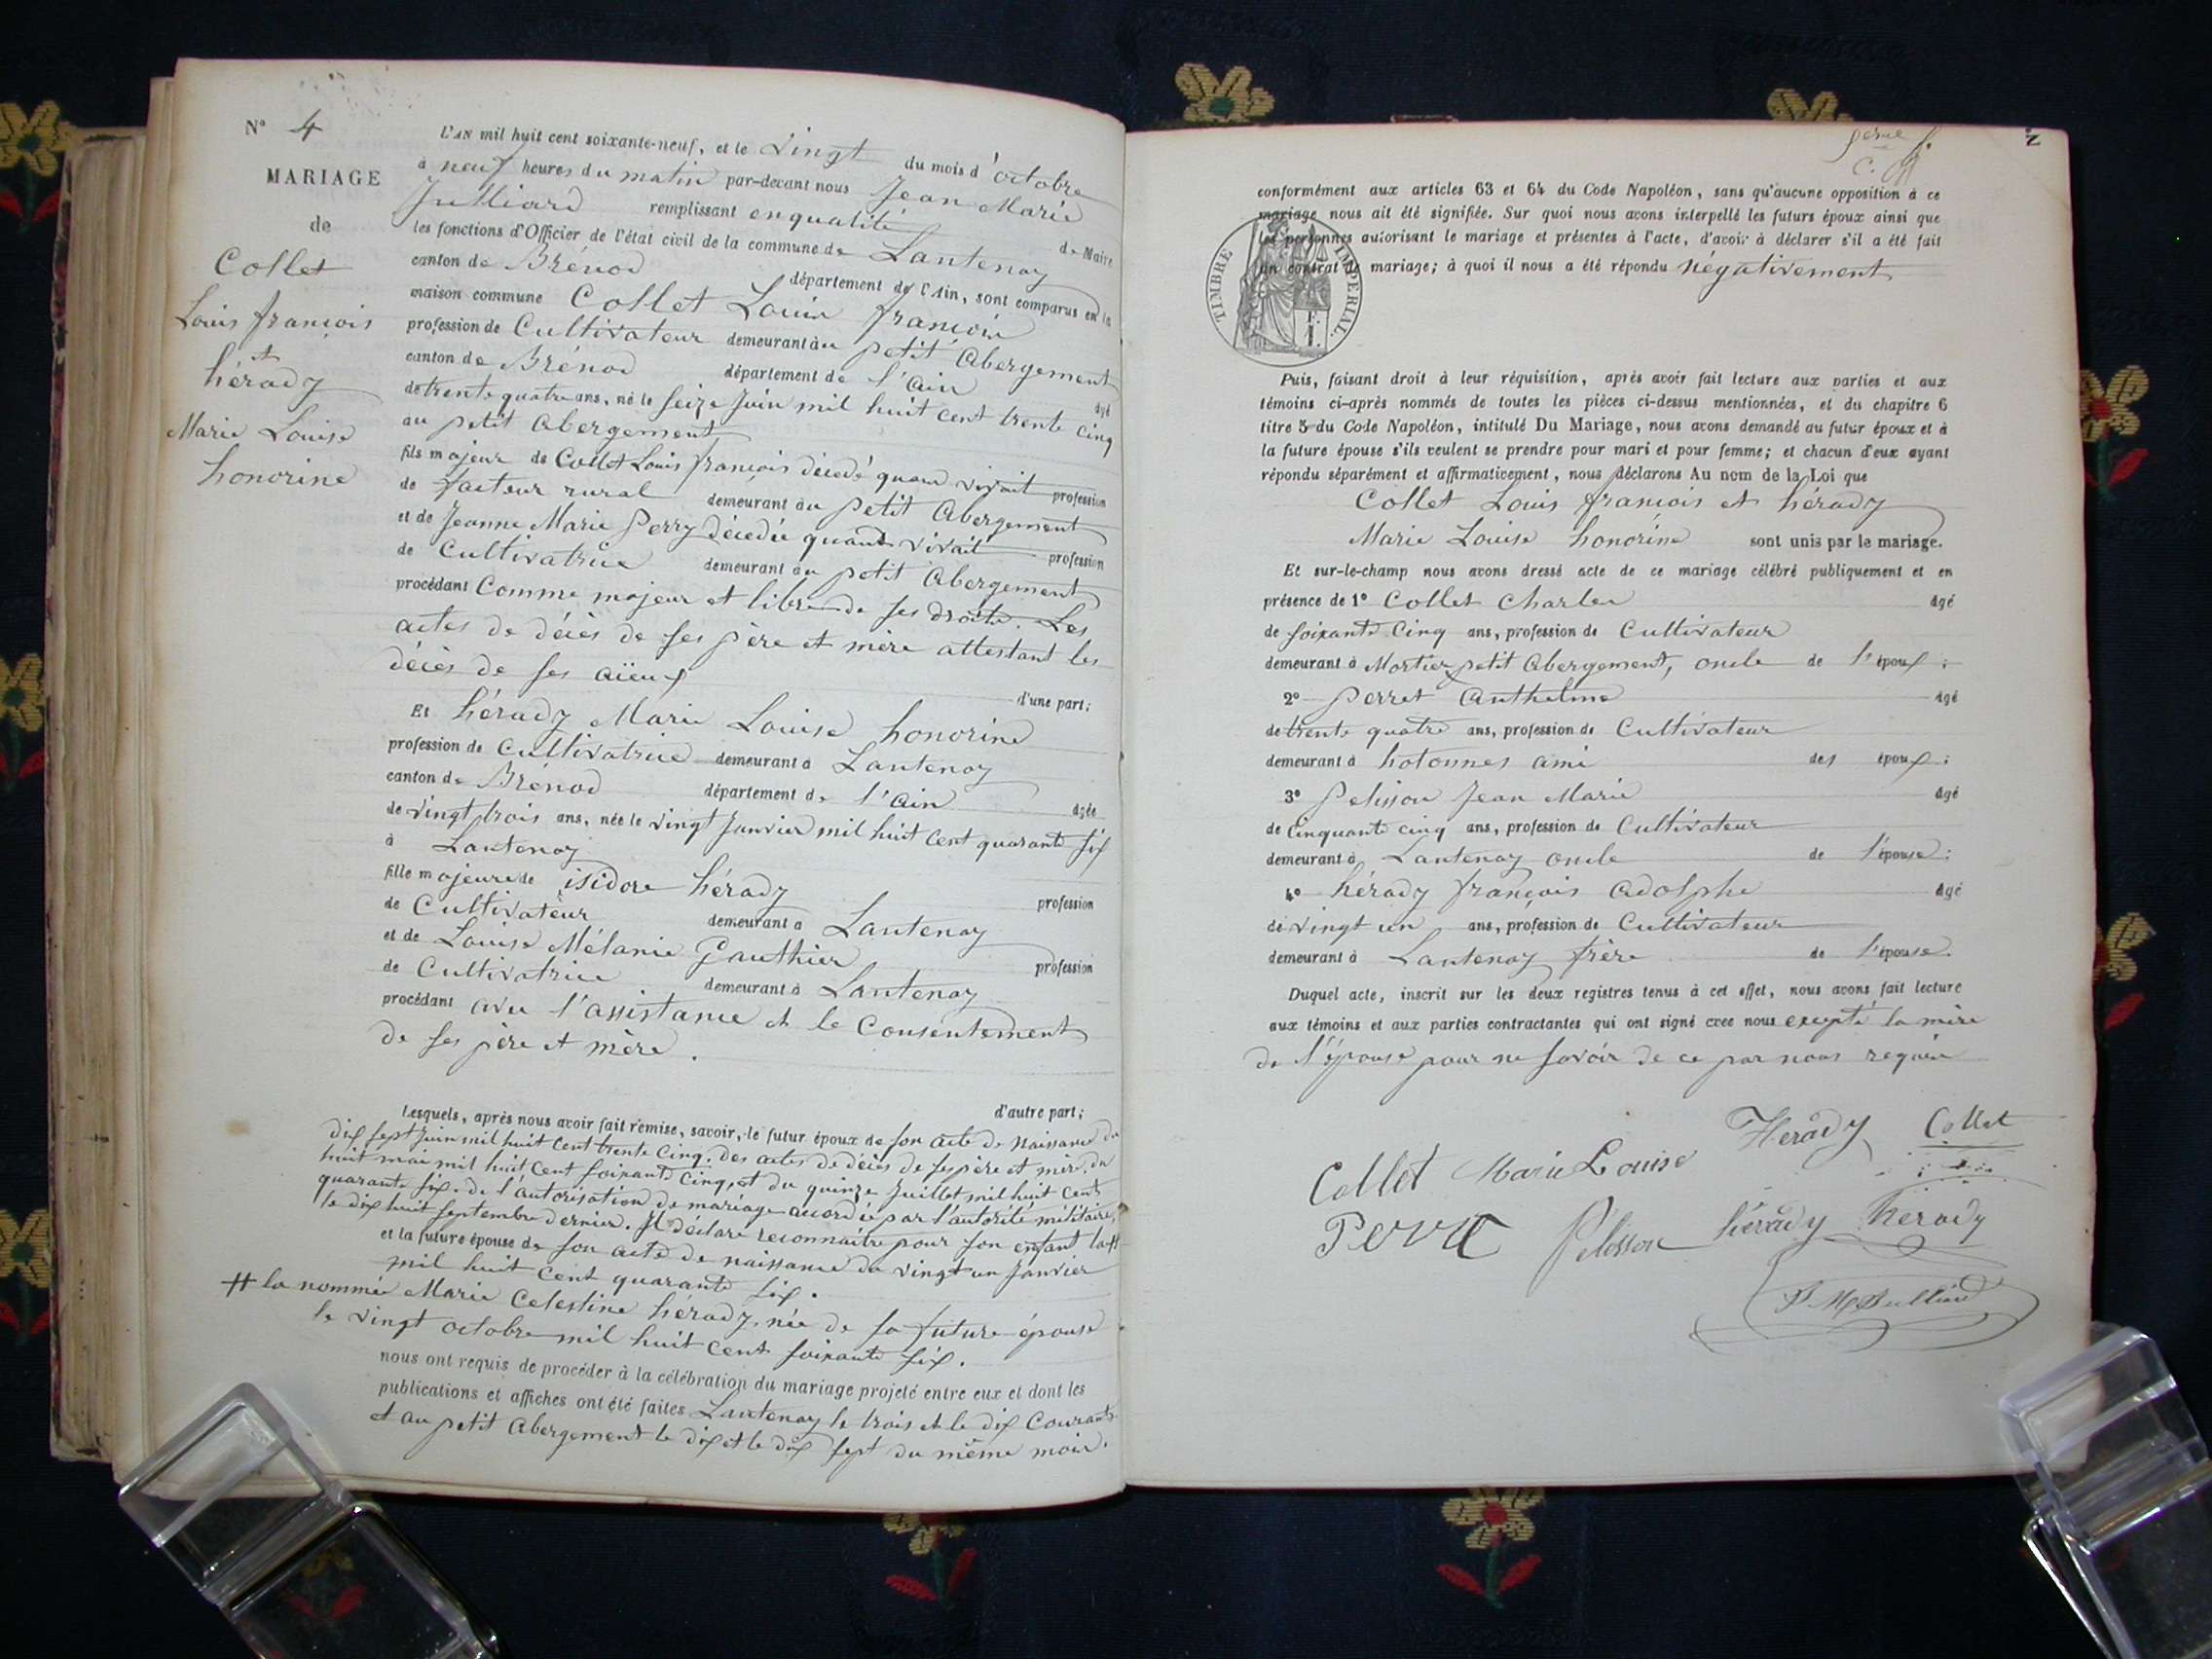 N° 4
MARIAGE
de
Collet
Louis françois
et
hérady
Marie Louise
honorine
L'AN mil huit cent soixante-neuf, et le vingt du mois d'octobre
à neuf heures du matin par-devant nous Jean Marie
Julliard remplissant en qualité de Maire
les fonctions d'Officier de l'état civil de la commune de Lantenay
canton de Brénod département de l'Ain, sont comparus en la
maison commune Collet Louis françois
profession de Cultivateur demeurant au petit Abergement
canton de Brénod département de l'ain agé
de trente quatre ans, né le seize juin mil huit cent trente cinq
au petit Abergement
fils majeur de Collet Louis françois décédé quand vivait profession
de facteur rural demeurant au petit Abergement
et de Jeanne Marie Perry décedée quand vivait profession
de Cultivatrice demeurant au petit Abergement
procédant Comme majeur et libre de ses droits. Les
actes de décès de ses père et mère attestant les
décès de ses aïeux
d'une part;
Et hérady Marie Louise honorine
profession de Cultivatrice demeurant à Lantenay
canton de Brénod département de l'ain agée
de vingt trois ans, née le vingt Janvier mil huit cent quarante six
à Lantenay
fille majeure de isidore hérady profession
de Cultivateur demeurant à Lantenay
et de Louise Mélanie Gauthier profession
de Cultivatrice demeurant à Lantenay
procédant avec l'assistance et le Consentement
de ses père et mère.
d'autre part;
Lesquels, après nous avoir fait remise, savoir, le futur époux de son acte de Naissance du
dix sept Juin mil huit cent trente cinq. des actes de décès de ses père et mère du
huit mai mil huit cent soixante cinq, et du quinze Juillet mil huit cent
quarante six. de l'autorisation de mariage accordée par l'autorité militaire,
le dix huit septembre dernier. Il déclare reconnaitre pour son enfant la #
et la future épouse de son acte de naissance du vingt un Janvier
mil huit cent quarante six.
# la nommée Marie Celestine hérady, née de la future épouse
le vingt octobre mil huit cent soixante six.
nous ont requis de procéder à la célébration du mariage projeté entre eux et dont les
publications et affiches ont été faites Lantenay le trois et le dix Courant
et au petit Abergement le dix et le dix sept du même mois.
conformément aux articles 63 et 64 du Code Napoléon, sans qu'aucune opposition à ce
mariage nous ait été signifiée. Sur quoi nous avons interpellé les futurs époux ainsi que
les personnes autorisant le mariage et présentes à l'acte, d'avoir à déclarer s'il a été fait
un contrat de mariage; à quoi il nous a été répondu négativement
TIMBRE IMPERIAL.
Puis, faisant droit à leur réquisition, après avoir fait lecture aux parties et aux
témoins ci-après nommés de toutes les pièces ci-dessus mentionnées, et du chapitre 6
titre 5 du Code Napoléon, intitulé Du Mariage, nous avons demandé au futur époux et à
la future épouse s'ils veulent se prendre pour mari et pour femme; et chacun d'eux ayant
répondu séparément et affirmativement, nous déclarons Au nom de la Loi que
Collet Louis françois et hérady
Marie Louise honorine sont unis par le mariage.
Et sur-le-champ nous avons dressé acte de ce mariage célébré publiquement et en
présence de 1° Collet Charles agé
de soixante cinq ans, profession de Cultivateur
demeurant à Mortier petit Abergement, oncle de l'époux;
2° Perret Anthelme agé
de trente quatre ans, profession de Cultivateur
demeurant à hotonnes ami des époux;
3° Pelisson Jean Marie agé
de Cinquante cinq ans, profession de Cultivateur
demeurant à Lantenay oncle de l'épouse;
4° hérady françois adolphe agé
de vingt un ans, profession de Cultivateur
demeurant à Lantenay frère de l'épouse.
Duquel acte, inscrit sur les deux registres tenus à cet effet, nous avons fait lecture
aux témoins et aux parties contractantes qui ont signé avec nous excepté la mère
de l'épouse pour ne savoir de ce par nous requise
Herady Collet
Collet Marie Louise
Perret Pelisson hérady herady
J M Julliard